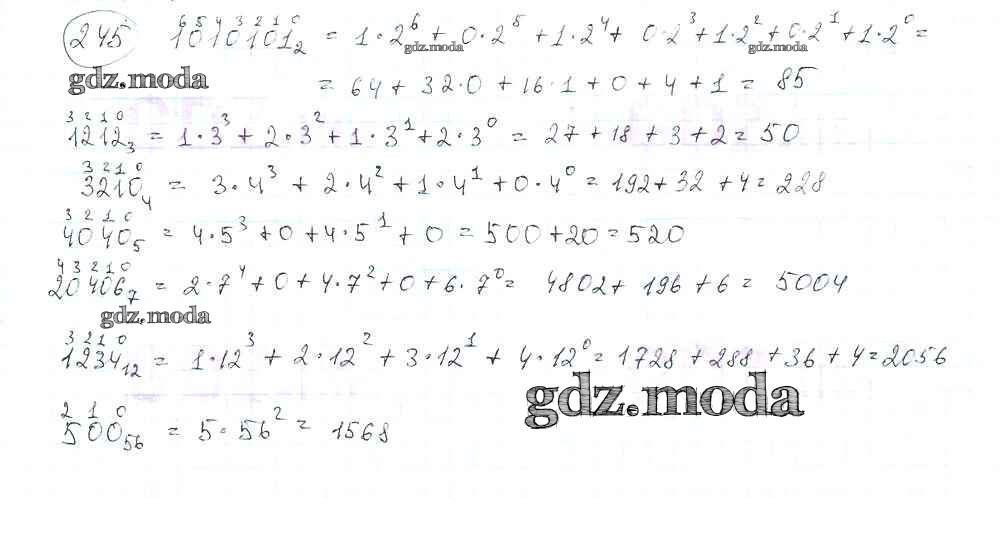 245 1010101₂ = 1·2⁶ + 0·2⁵ + 1·2⁴ + 0·2³ + 1·2² + 0·2¹ + 1·2⁰ =
6 5 4 3 2 1 0
gdz.moda gdz.moda
gdz.moda
= 64 + 32·0 + 16·1 + 0 + 4 + 1 = 85
3 2 1 0
1212₃ = 1·3³ + 2·3² + 1·3¹ + 2·3⁰ = 27 + 18 + 3 + 2 = 50
3 2 1 0
3210₄ = 3·4³ + 2·4² + 1·4¹ + 0·4⁰ = 192 + 32 + 4 = 228
3 2 1 0
4040₅ = 4·5³ + 0 + 4·5¹ + 0 = 500 + 20 = 520
4 3 2 1 0
20406₇ = 2·7⁴ + 0 + 4·7² + 0 + 6·7⁰ = 4802 + 196 + 6 = 5004
gdz.moda
3 2 1 0
1234₁₂ = 1·12³ + 2·12² + 3·12¹ + 4·12⁰ = 1728 + 288 + 36 + 4 = 2056
gdz.moda
2 1 0
500₅₆ = 5·56² = 1568